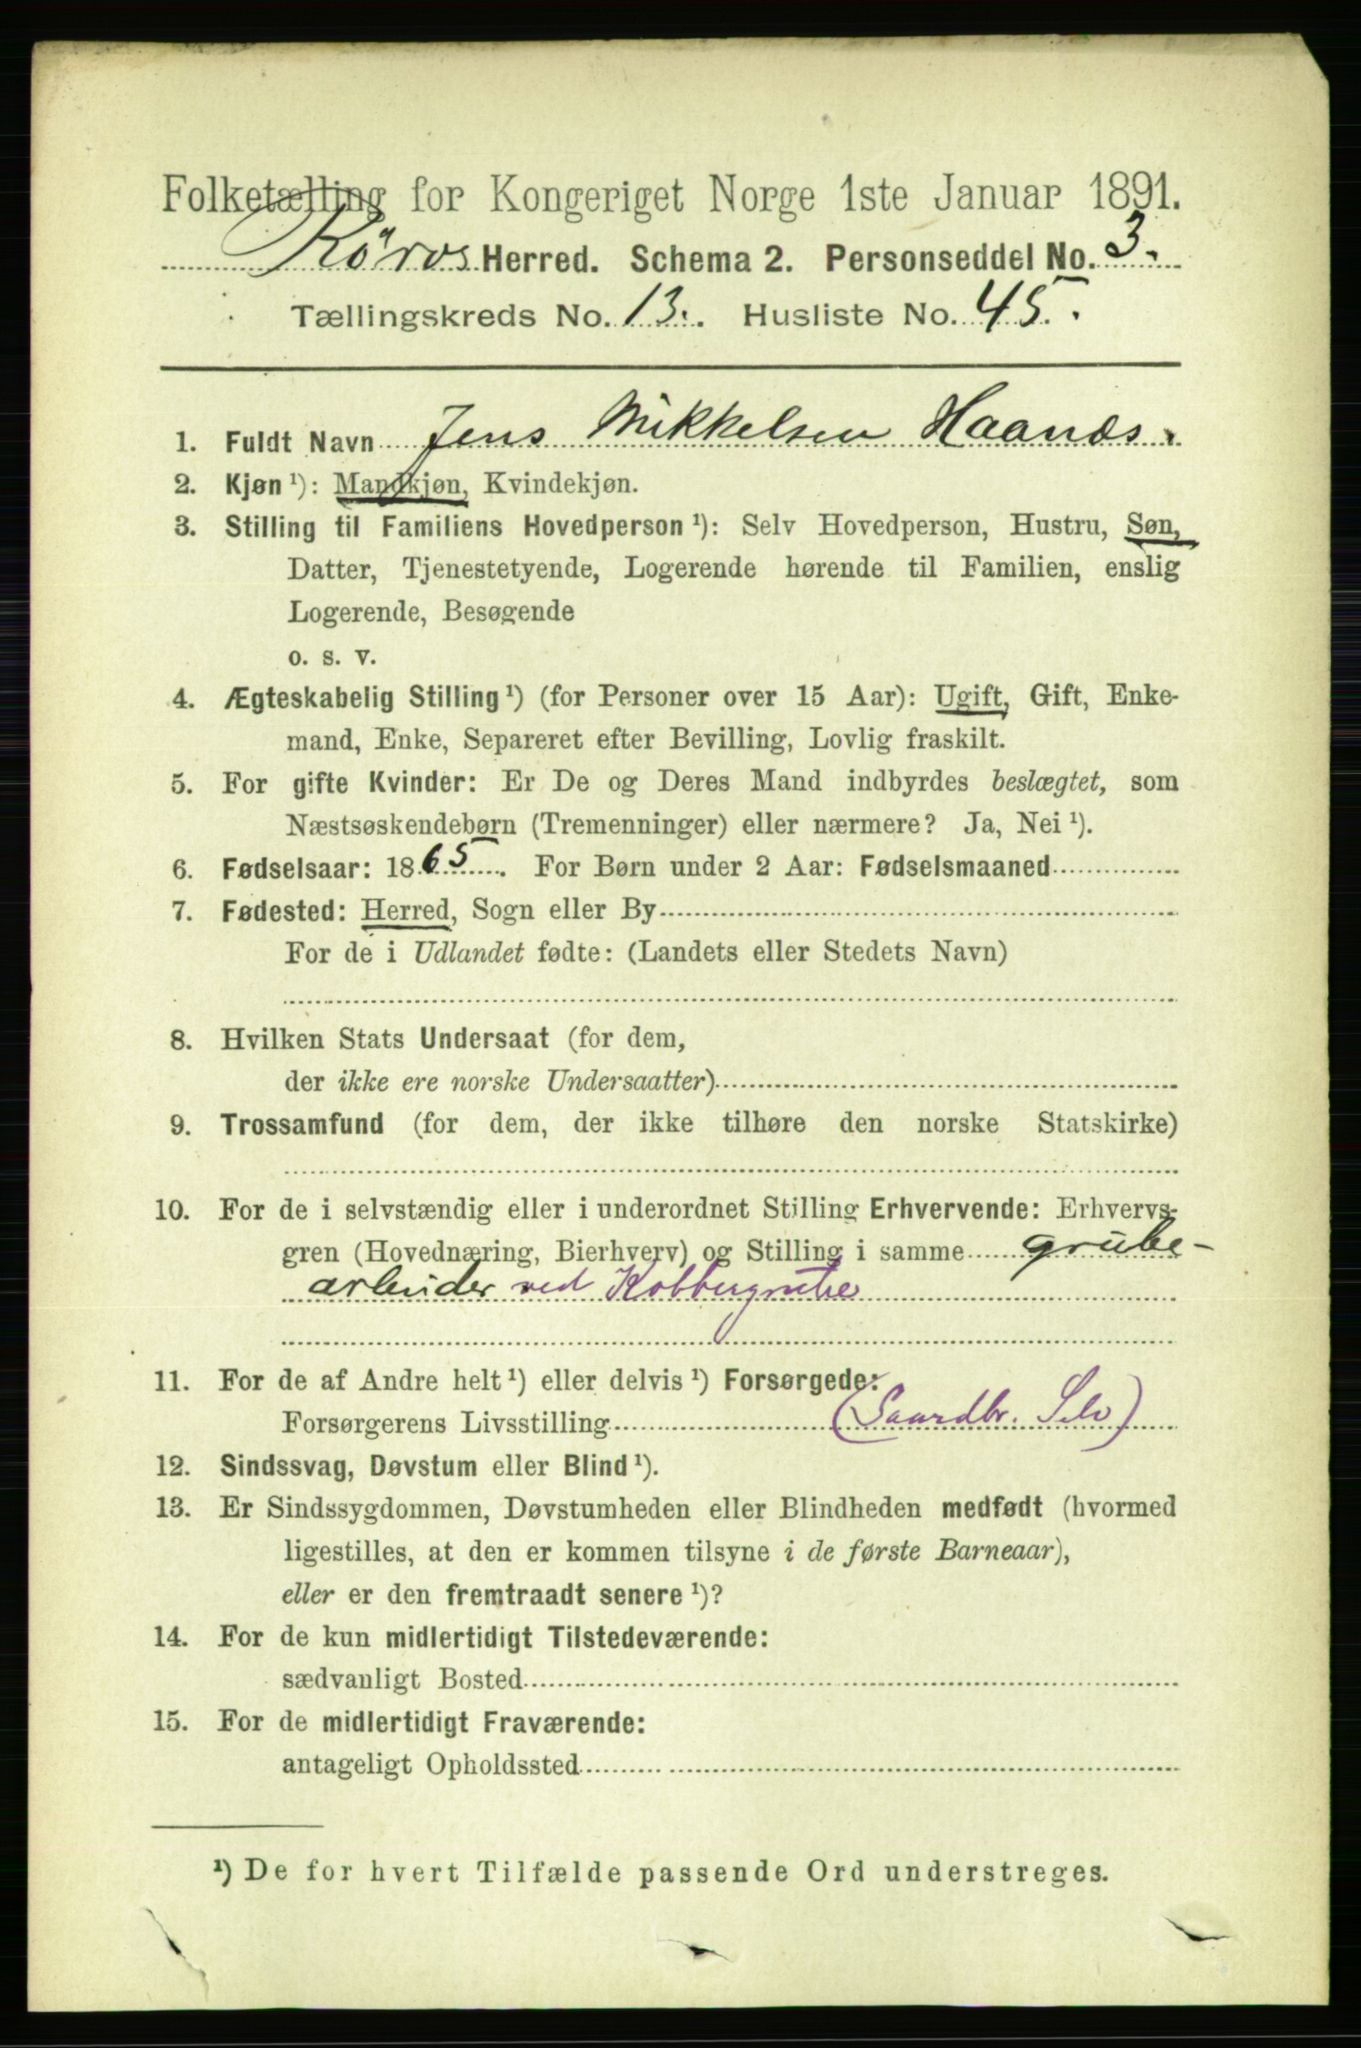 Folketælling for Kongeriget Norge 1ste Januar 1891.
Röros Herred. Schema 2. Personseddel No. 3.
Tællingskreds No. 13. Husliste No. 45.
1. Fuldt Navn Jens Mikkelsen Haanæs.
2. Kjøn ¹): Mandkjøn, Kvindekjøn.
3. Stilling til Familiens Hovedperson ¹): Selv Hovedperson, Hustru, Søn,
Datter, Tjenestetyende, Logerende hørende til Familien, enslig
Logerende, Besøgende
o. s. v.
4. Ægteskabelig Stilling ¹) (for Personer over 15 Aar): Ugift, Gift, Enke-
mand, Enke, Separeret efter Bevilling, Lovlig fraskilt.
5. For gifte Kvinder: Er De og Deres Mand indbyrdes beslægtet, som
Næstsøskendebørn (Tremenninger) eller nærmere? Ja, Nei ¹).
6. Fødselsaar: 1865. For Børn under 2 Aar: Fødselsmaaned
7. Fødested: Herred, Sogn eller By
For de i Udlandet fødte: (Landets eller Stedets Navn)
8. Hvilken Stats Undersaat (for dem,
der ikke ere norske Undersaatter)
9. Trossamfund (for dem, der ikke tilhøre den norske Statskirke)
10. For de i selvstændig eller i underordnet Stilling Erhvervende: Erhvervs-
gren (Hovednæring, Bierhverv) og Stilling i samme grube-
arbeider ved Kobbergrube
11. For de af Andre helt ¹) eller delvis ¹) Forsørgede:
Forsørgerens Livsstilling (Gaardbr. Selv)
12. Sindssvag, Døvstum eller Blind ¹).
13. Er Sindssygdommen, Døvstumheden eller Blindheden medfødt (hvormed
ligestilles, at den er kommen tilsyne i de første Barneaar),
eller er den fremtraadt senere ¹)?
14. For de kun midlertidigt Tilstedeværende:
sædvanligt Bosted
15. For de midlertidigt Fraværende:
antageligt Opholdssted
¹) De for hvert Tilfælde passende Ord understreges.